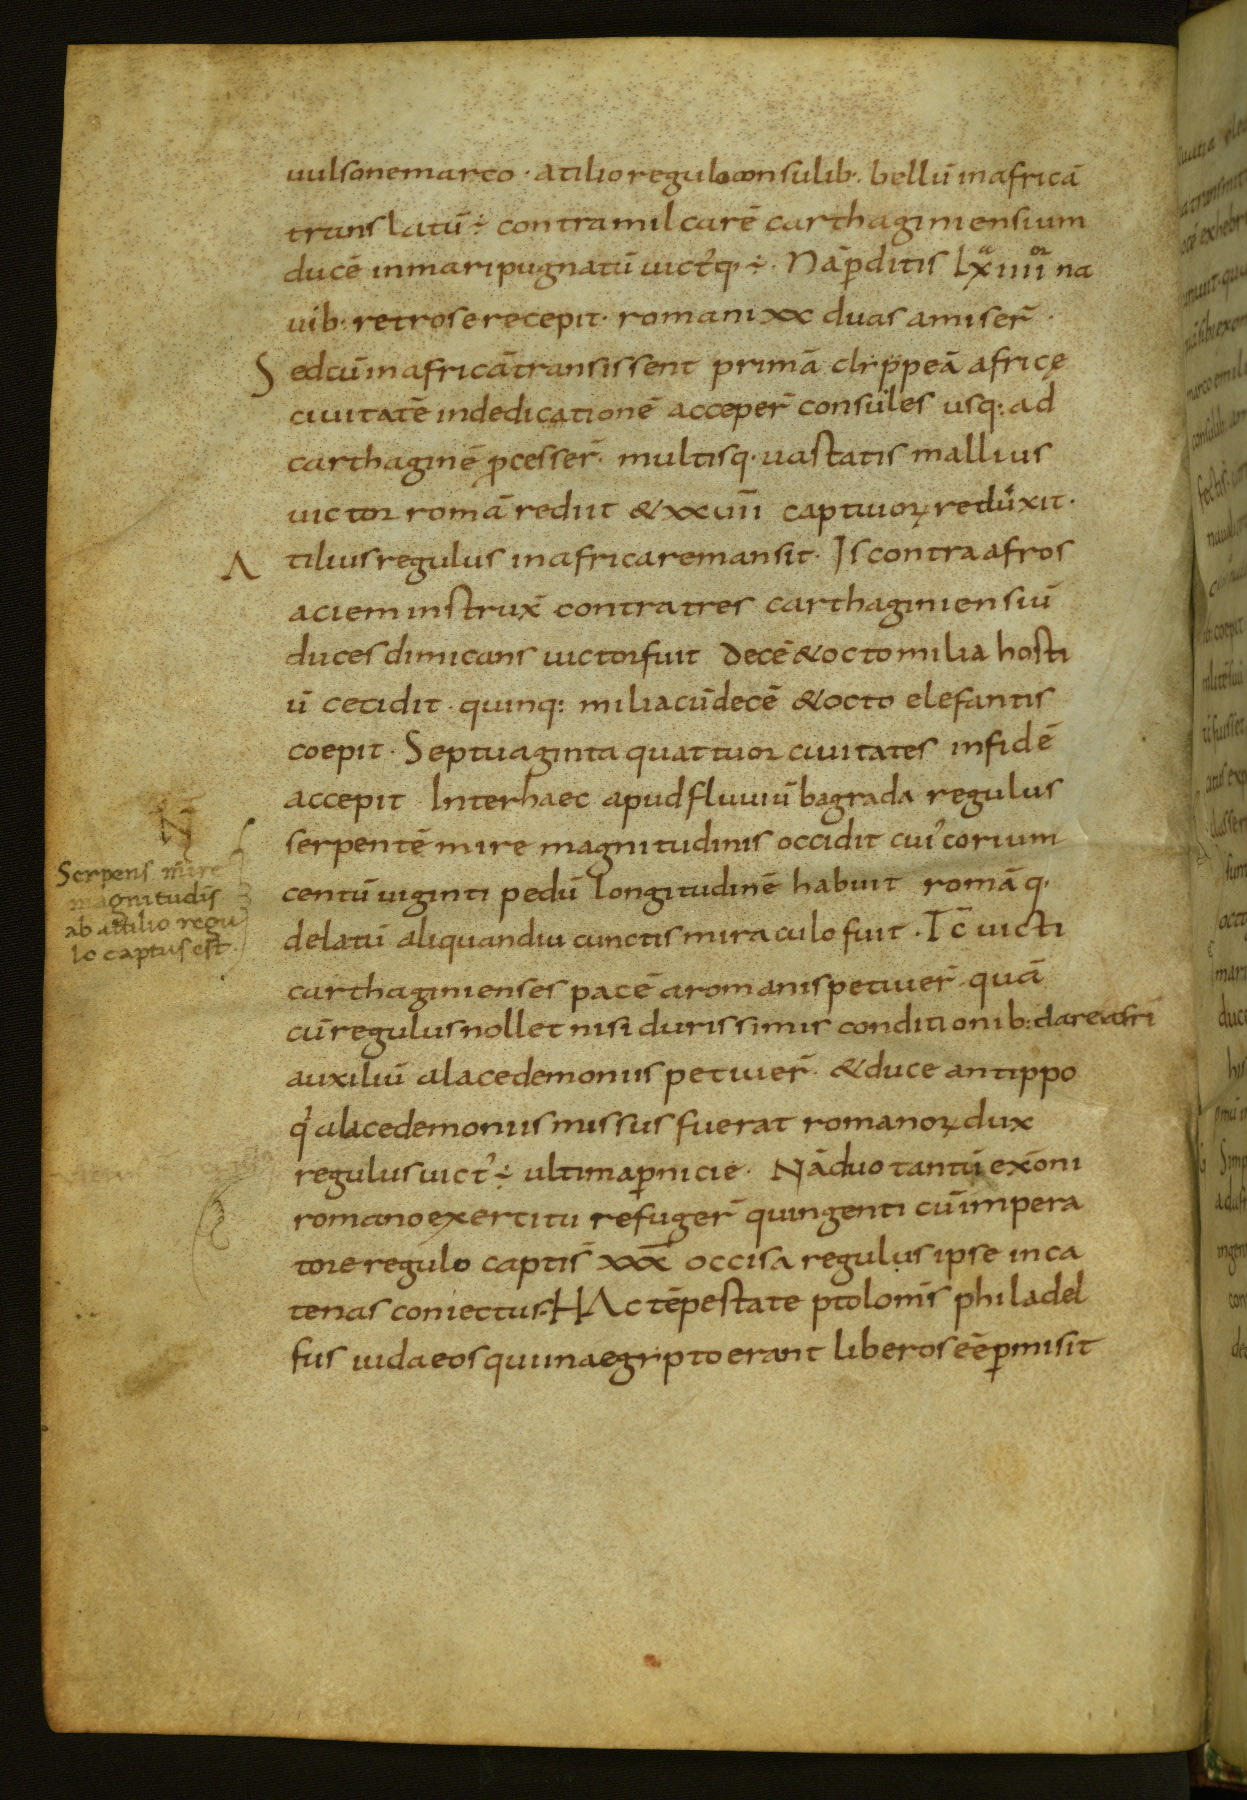 uulsone marco · atilio regulo consulib· bellū in africā
translatū ÷ contramilcarē carthaginiensium
ducē in mari pugnatū uict᷒q· ÷ · Nā ꝑditis lxͣiiiiͦͬ na
uib· retro se recepit · romani xx duas amiser̄ ·
Sed cū in africā transissent primā clippeā africę
ciuitatē in dedicationē acceper̄ consules usq: ad
carthaginē ꝓcesser̄ · multisq· uastatis mallius
uictor romā rediit & xxuii captiuoꝝ reduxit ·
Atilius regulus in africa remansit · Is contra afros
aciem instrux̄ contra tres carthaginiensiū
duces dimicans uictor fuit decē & octo milia hosti
ū cecidit · quinq: milia cū decē & octo elefantis
coepit · Septuaginta quattuor ciuitates in fidē
accepit Inter haec apud fluuiū bagrada regulus
serpentē mire magnitudinis occidit cui᷒ corium
centū uiginti pedū longitudinē habuit romāq·
delatū aliquandiu cunctis miraculo fuit · Tc̄ uicti
carthaginienses pacē a romanis petiuer̄ · quā
cū regulus nollet nisi durissimis conditionib: dare afri
auxiliū a lacedemoniis petiuer̄ · & duce antippo
qͥ a lacedemoniis missus fuerat romanoꝝ dux
regulus uict᷒ ÷ ultima ꝑnicie · Nā duo tantū ex om̄i
romano exercitu refuger̄ quingenti cū impera
tore regulo captis̄ xxx̄ occisa regulus ipse in ca
tenas coniectus · HAc tēpestate ptolom̄s philadel
fus iudaeos qui in aegipto erant liberos eē ꝑmisit
N̄
Serpens mire
magnitudīs
ab attilio regu
lo captus est ·